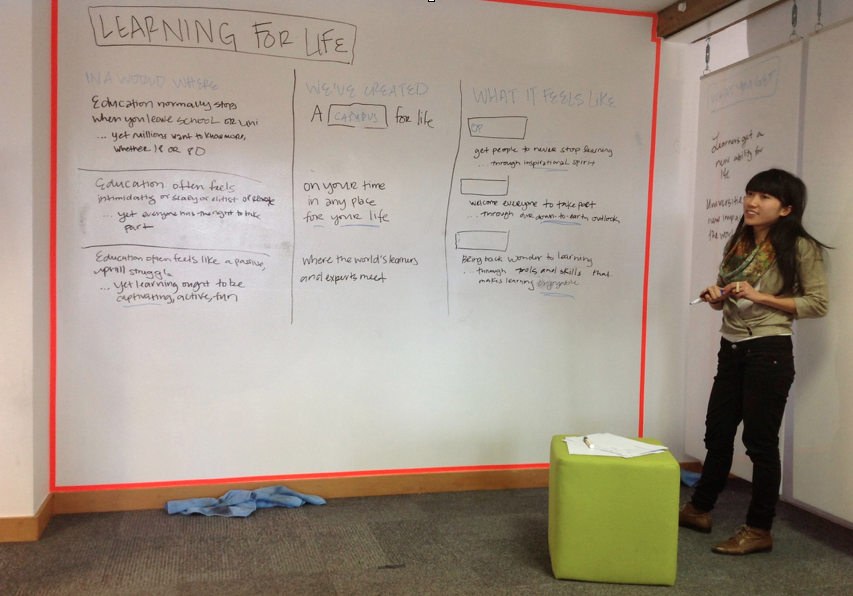 LEARNING FOR LIFE
IN A WORLD WHERE
Education normally stops
when you leave SCHOOL OR Uni
... yet millions want to know more,
whether 18 OR 80
Education often feels
intimidating or scary or elitist or remote
... yet everyone has the right to take
part
Education often feels like a passive,
uphill struggle
... yet learning ought to be
captivating, active, fun
WE'VE CREATED
A CAMPUS for life
on your time
in any place
for your life
where the world's learners
and experts meet
WHAT IT FEELS LIKE
get people to never stop learning
... through inspirational spirit
welcome everyone to take part
... through our down-to-earth outlook
Bring back wonder to learning
... through tools and skills that
makes learning
WHAT YOU GET
Learners get a
new ability for
life
new
the